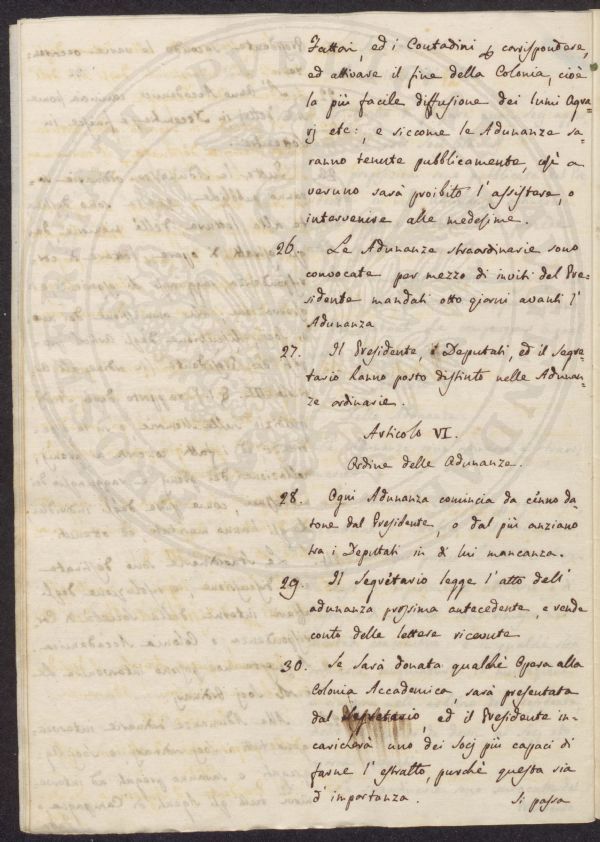 Fattori, ed i Contadini p corrispondere,
ed attivare il fine della Colonia, cioè
la più facile diffusione dei lumi Agra-
rj etc:, e siccome le Adunanze sa-
ranno tenute pubblicamente, così a
veruno sarà proibito l'assistere, o
intervenire alle medesime.
26. Le Adunanze straordinarie sono
convocate per mezzo di inviti del Pre-
sidente mandati otto giorni avanti l'
Adunanza
27. Il Presidente, i Deputati, ed il Segre-
tario hanno posto distinto nelle Adunan-
ze ordinarie.
Articolo VI.
Ordine delle Adunanze.
28. Ogni Adunanza comincia da cenno da-
tone dal Presidente, o dal più anziano
tra i Deputati in di lui mancanza.
29. Il Segretario legge l'atto dell'
adunanza prossima antecedente, e rende
conto delle lettere ricevute
30. Se sarà donata qualche Opera alla
Colonia Accademica, sarà presentata
dal Segretario, ed il Presidente in-
caricherà uno dei Socj più capaci di
farne l'estratto, purchè questa sia
d'importanza. Si passa